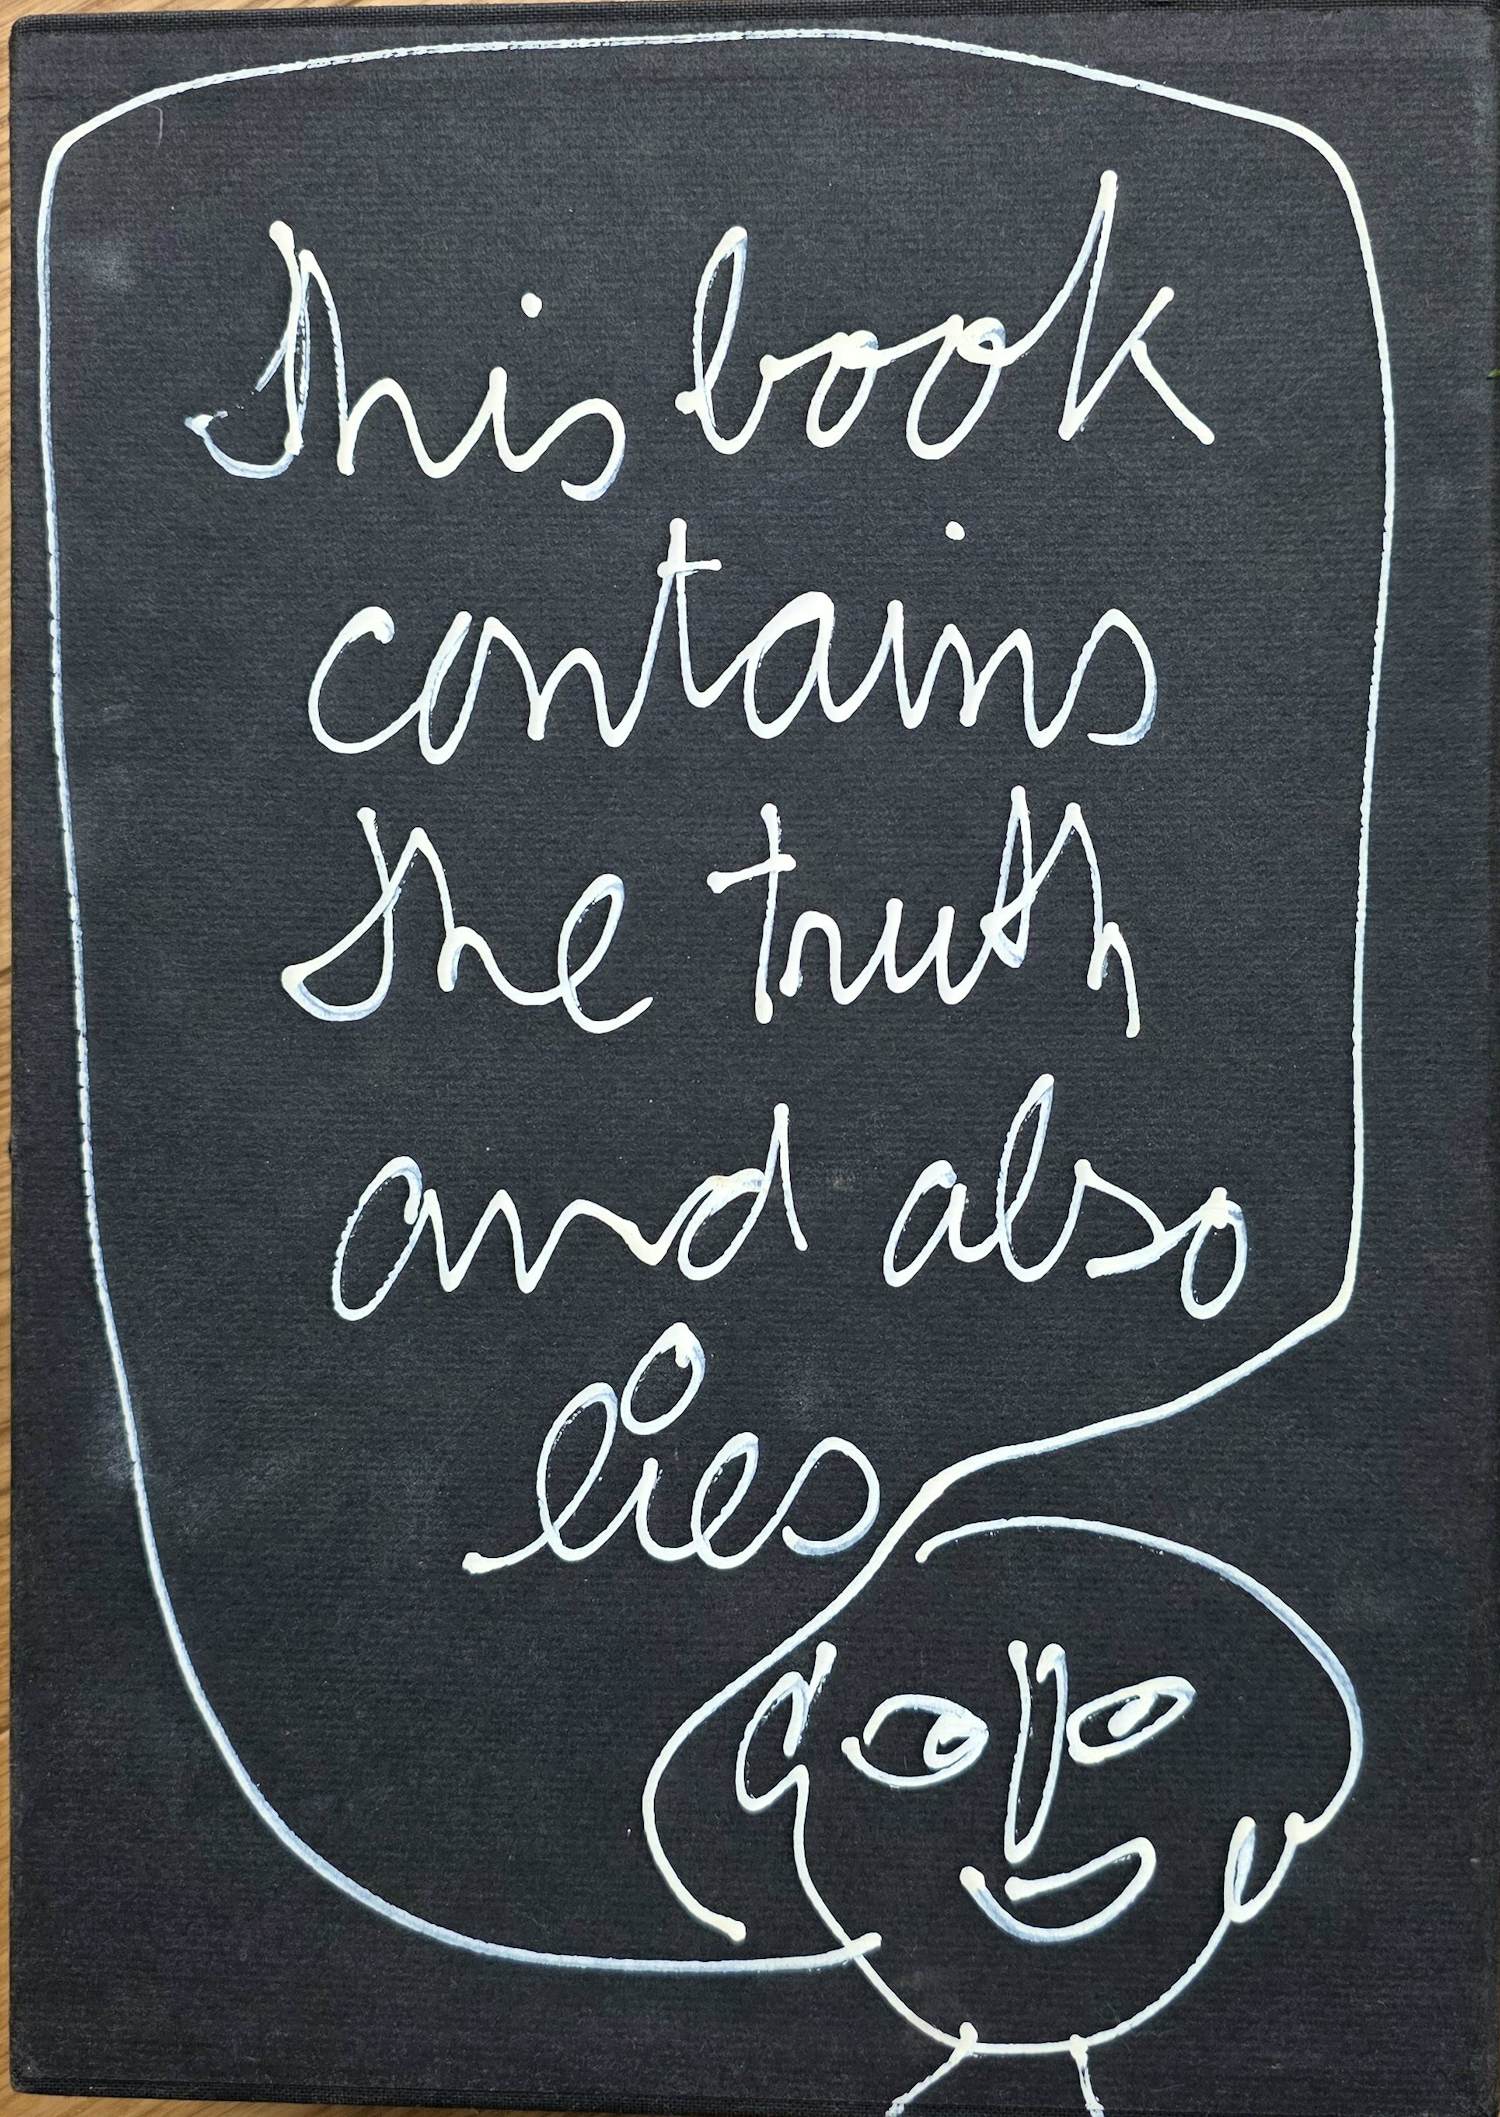 This book
contains
the truth
and also
lies